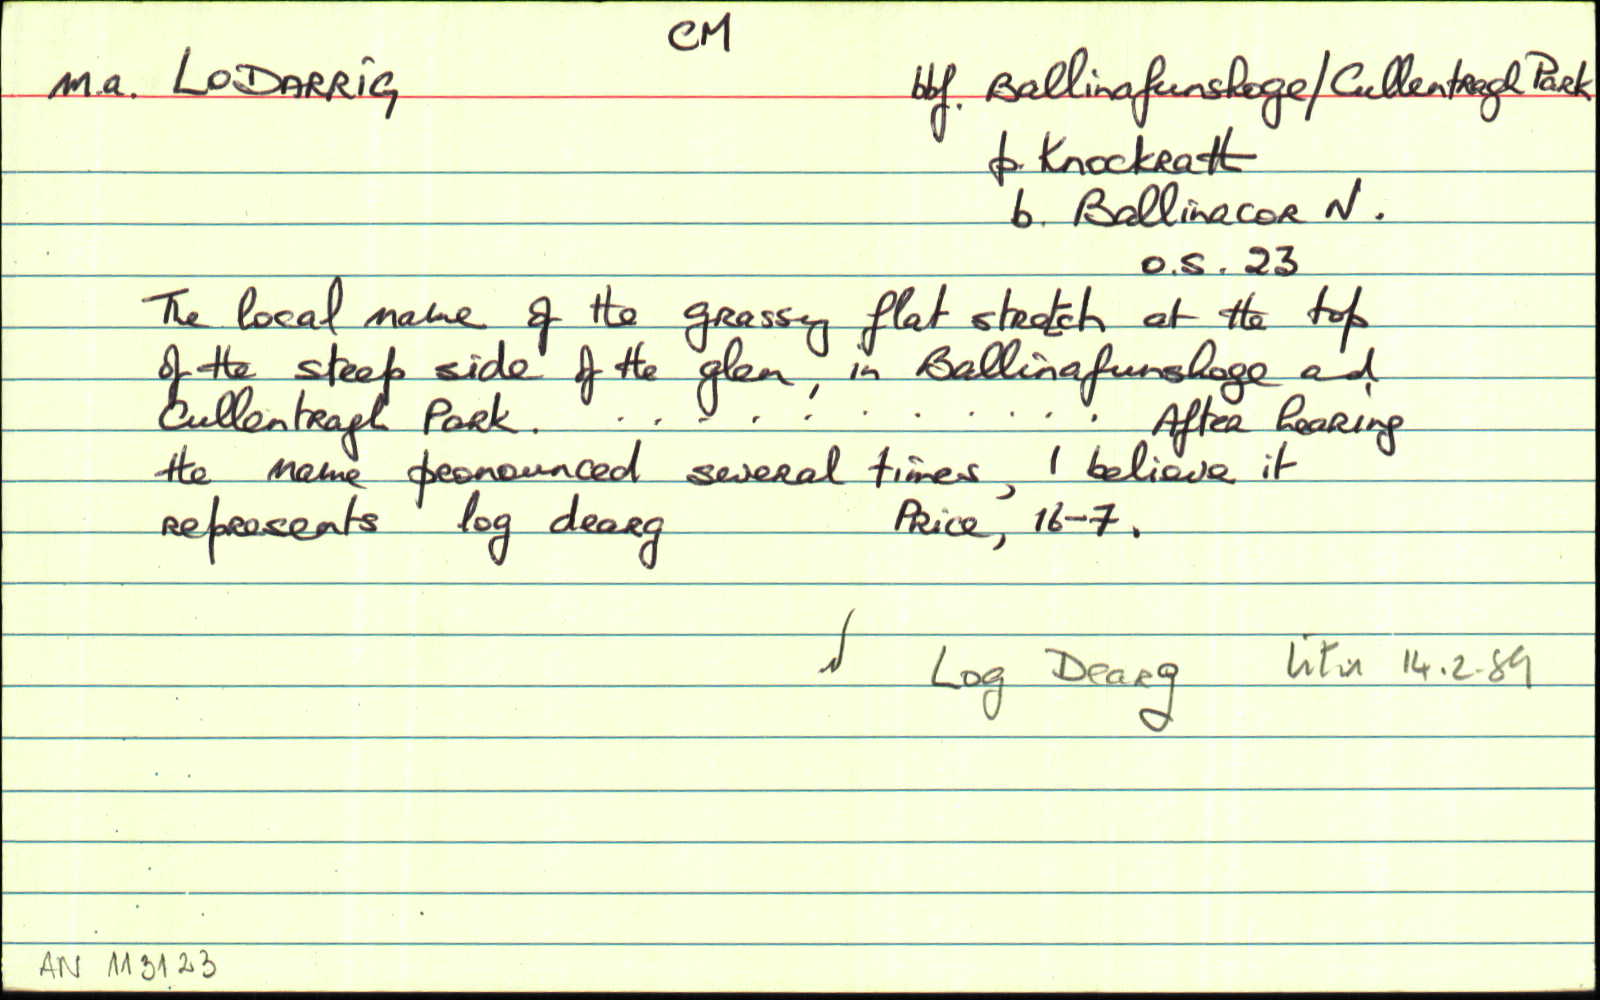 CM
m.a. LODARRIG bbf. Ballinafunshoge/Cullentragh Park
p. Knockrath
b. Ballinacor N.
O.S. 23
The local name of the grassy flat stretch at the top
of the steep side of the glen, in Ballinafunshoge and
Cullentragh Park. . . . . . . . . . . After hearing
the name pronounced several times, I believe it
represents log dearg Price, 16-7.
Log Dearg 14.2.89
AN 113123